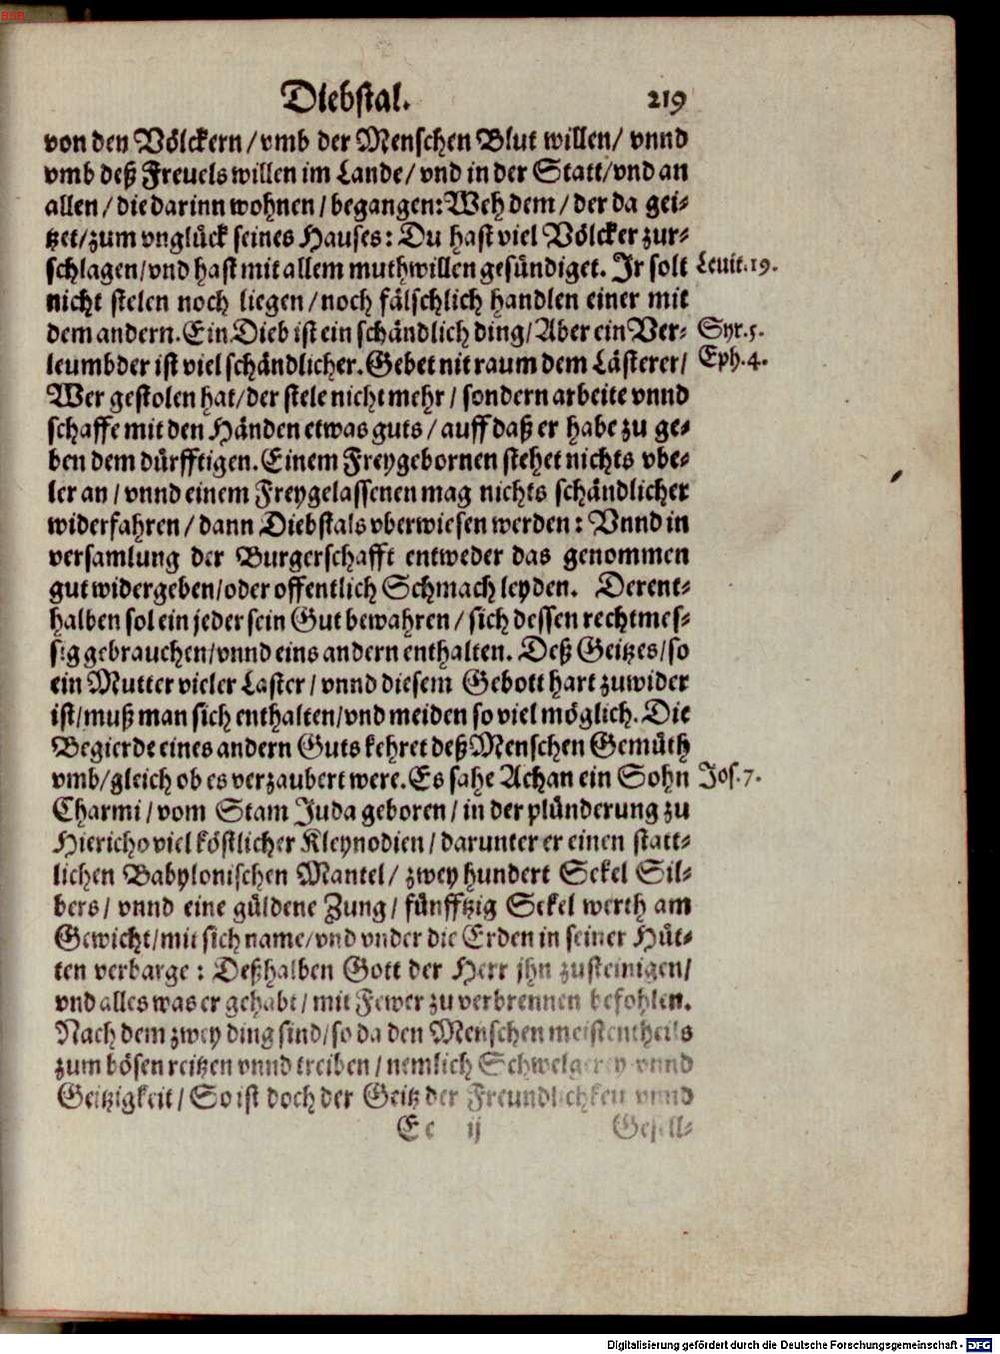 BSB
Diebstal. 219
von den Völckern / vmb der Menschen Blut willen / vnnd
vmb deß Freuels willen im Lande / vnd in der Statt / vnd an
allen / die darinn wohnen / begangen: Weh dem / der da gei-
tzet / zum vnglück seines Hauses: Du hast viel Völcker zur-
schlagen / vnd hast mit allem muthwillen gesündiget. Jr solt Leuit. 19.
nicht stelen noch liegen / noch fälschlich handlen einer mit
dem andern. Ein Dieb ist ein schändlich ding / Aber ein Ver- Syr. 5.
leumbder ist viel schändlicher. Gebet nit raum dem Lästerer / Eph. 4.
Wer gestolen hat / der stele nicht mehr / sondern arbeite vnnd
schaffe mit den Händen etwas guts / auff daß er habe zu ge-
ben dem dürfftigen. Einem Freygebornen stehet nichts vbe-
ler an / vnnd einem Freygelassenen mag nichts schändlicher
widerfahren / dann Diebstals vberwiesen werden: Vnnd in
versamlung der Burgerschafft entweder das genommen
gut widergeben / oder offentlich Schmach leyden. Derent-
halben sol ein jeder sein Gut bewahren / sich dessen rechtmes-
sig gebrauchen / vnnd eins andern enthalten. Deß Geitzes / so
ein Mutter vieler Laster / vnnd diesem Gebott hart zuwider
ist / muß man sich enthalten / vnd meiden so viel möglich. Die
Begierde eines andern Guts kehret deß Menschen Gemüth
vmb / gleich ob es verzaubert were. Es sahe Achan ein Sohn Jos. 7.
Charmi / vom Stam Juda geboren / in der plünderung zu
Hiericho viel köstlicher Kleynodien / darunter er einen statt-
lichen Babylonischen Mantel / zwey hundert Sekel Sil-
bers / vnnd eine güldene Zung / fünfftzig Sekel werth am
Gewicht / mit sich name / vnd vnder die Erden in seiner Hüt-
ten verbarge: Deßhalben Gott der Herr jhn zusteinigen /
vnd alles was er gehabt / mit Fewer zu verbrennen befohlen.
Nach dem zwey ding sind / so da den Menschen meistentheils
zum bösen reitzen vnnd treiben / nemlich Schwelgerey vnnd
Geitzigkeit / So ist doch der Geitz der Freundlichkeit vnnd
Ee ij Gesell-
Digitalisierung gefördert durch die Deutsche Forschungsgemeinschaft - DFG